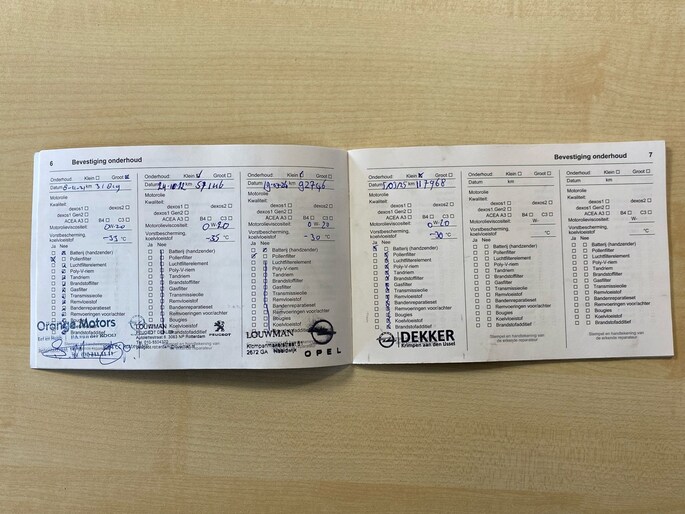 6 Bevestiging onderhoud
Onderhoud: Klein Groot
Datum km
Motorolie
Kwaliteit:
dexos1 dexos2
dexos1 Gen2
ACEA A3 B4 C3
Motorolieviscositeit: 0W-20
Vorstbescherming,
koelvloeistof -33 °C
Ja Nee
Batterij (handzender)
Pollenfilter
Luchtfilterelement
Poly-V-riem
Tandriem
Brandstoffilter
Gasfilter
Transmissieolie
Remvloeistof
Bandenreparatieset
Orange Motors
Onderhoud: Klein Groot
Datum km
Motorolie
Kwaliteit:
dexos1 dexos2
dexos1 Gen2
ACEA A3 B4 C3
Motorolieviscositeit: 0W-20
Vorstbescherming,
koelvloeistof -35 °C
Ja Nee
Batterij (handzender)
Pollenfilter
Luchtfilterelement
Poly-V-riem
Tandriem
Brandstoffilter
Gasfilter
Transmissieolie
Remvloeistof
Bandenreparatieset
Remvoeringen voor/achter
Bougies
Koelvloeistof
Brandstofadditief
LOUWMAN
PEUGEOT
Onderhoud: Klein Groot
Datum km 92746
Motorolie
Kwaliteit:
dexos1 dexos2
dexos1 Gen2
ACEA A3 B4 C3
Motorolieviscositeit: 0W-20
Vorstbescherming,
koelvloeistof -30 °C
Ja Nee
Batterij (handzender)
Pollenfilter
Luchtfilterelement
Poly-V-riem
Tandriem
Brandstoffilter
Gasfilter
Transmissieolie
Remvloeistof
Bandenreparatieset
Remvoeringen voor/achter
Bougies
Koelvloeistof
LOUWMAN
2672 GA Naaldwijk
OPEL
Bevestiging onderhoud 7
Onderhoud: Klein Groot
Datum km 117968
Motorolie
Kwaliteit:
dexos1 dexos2
dexos1 Gen2
ACEA A3 B4 C3
Motorolieviscositeit: 0W-20
Vorstbescherming,
koelvloeistof -30 °C
Ja Nee
Batterij (handzender)
Pollenfilter
Luchtfilterelement
Poly-V-riem
Tandriem
Brandstoffilter
Gasfilter
Transmissieolie
Remvloeistof
Bandenreparatieset
Remvoeringen voor/achter
Bougies
Koelvloeistof
Brandstofadditief
DEKKER
Krimpen aan den IJssel
Onderhoud: Klein Groot
Datum km
Motorolie
Kwaliteit:
dexos1 dexos2
dexos1 Gen2
ACEA A3 B4 C3
Motorolieviscositeit: W-
Vorstbescherming,
koelvloeistof °C
Ja Nee
Batterij (handzender)
Pollenfilter
Luchtfilterelement
Poly-V-riem
Tandriem
Brandstoffilter
Gasfilter
Transmissieolie
Remvloeistof
Bandenreparatieset
Remvoeringen voor/achter
Bougies
Koelvloeistof
Brandstofadditief
Stempel en handtekening van
de erkende reparateur
Onderhoud: Klein Groot
Datum km
Motorolie
Kwaliteit:
dexos1 dexos2
dexos1 Gen2
ACEA A3 B4 C3
Motorolieviscositeit: W-
Vorstbescherming,
koelvloeistof °C
Ja Nee
Batterij (handzender)
Pollenfilter
Luchtfilterelement
Poly-V-riem
Tandriem
Brandstoffilter
Gasfilter
Transmissieolie
Remvloeistof
Bandenreparatieset
Remvoeringen voor/achter
Bougies
Koelvloeistof
Brandstofadditief
Stempel en handtekening van
de erkende reparateur